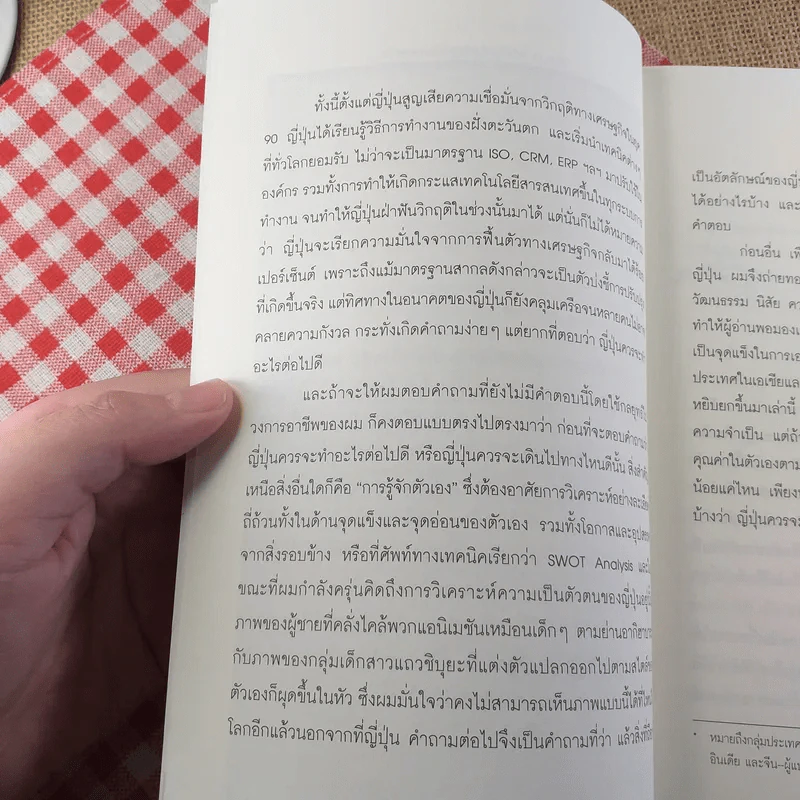 ทั้งนี้ตั้งแต่ญี่ปุ่นสูญเสียความเชื่อมั่นจากวิกฤติทางเศรษฐกิจใน
90 ญี่ปุ่นได้เรียนรู้วิธีการทำงานของฝั่งตะวันตก และเริ่มนำเทคนิคต่างๆ
ที่ทั่วโลกยอมรับ ไม่ว่าจะเป็นมาตรฐาน ISO, CRM, ERP ฯลฯ มาปรับใช้
องค์กร รวมทั้งการทำให้เกิดกระแสเทคโนโลยีสารสนเทศขึ้นในทุกระบบการ
ทำงาน จนทำให้ญี่ปุ่นฝ่าฟันวิกฤติในช่วงนั้นมาได้ แต่นั่นก็ไม่ได้หมายความ
ว่า ญี่ปุ่นจะเรียกความมั่นใจจากการฟื้นตัวทางเศรษฐกิจกลับมาได้ร้อย
เปอร์เซ็นต์ เพราะถึงแม้มาตรฐานสากลดังกล่าวจะเป็นตัวบ่งชี้การปรับปรุง
ที่เกิดขึ้นจริง แต่ทิศทางในอนาคตของญี่ปุ่นก็ยังคลุมเครือจนหลายคนไม่อาจ
คลายความกังวล กระทั่งเกิดคำถามง่ายๆ แต่ยากที่ตอบว่า ญี่ปุ่นควรจะทำ
อะไรต่อไปดี
และถ้าจะให้ผมตอบคำถามที่ยังไม่มีคำตอบนี้โดยใช้กลยุทธ์ใน
วงการอาชีพของผม ก็คงตอบแบบตรงไปตรงมาว่า ก่อนที่จะตอบคำถามว่า
ญี่ปุ่นควรจะทำอะไรต่อไปดี หรือญี่ปุ่นควรจะเดินไปทางไหนดีนั้น สิ่งสำคัญ
เหนือสิ่งอื่นใดก็คือ “การรู้จักตัวเอง” ซึ่งต้องอาศัยการวิเคราะห์อย่างละเอียด
ถี่ถ้วนทั้งในด้านจุดแข็งและจุดอ่อนของตัวเอง รวมทั้งโอกาสและอุปสรรค
จากสิ่งรอบข้าง หรือที่ศัพท์ทางเทคนิคเรียกว่า SWOT Analysis และใน
ขณะที่ผมกำลังครุ่นคิดถึงการวิเคราะห์ความเป็นตัวตนของญี่ปุ่นอยู่นั้น
ภาพของผู้ชายที่คลั่งไคล้พวกแอนิเมชันเหมือนเด็กๆ ตามย่านอากิฮาบาระ
กับภาพของกลุ่มเด็กสาวแถวชิบุยะที่แต่งตัวแปลกออกไปตามสไตล์ของ
ตัวเองก็ผุดขึ้นในหัว ซึ่งผมมั่นใจว่าคงไม่สามารถเห็นภาพแบบนี้ได้ที่ไหนใน
โลกอีกแล้วนอกจากที่ญี่ปุ่น คำถามต่อไปจึงเป็นคำถามที่ว่า แล้วสิ่งที่ถือ
เป็นอัตลักษณ์ของญี่ปุ่น
ได้อย่างไรบ้าง และ
คำตอบ
ก่อนอื่น
ญี่ปุ่น ผมจึงถ่ายทอ
วัฒนธรรม นิสัย
ทำให้ผู้อ่านพอมอง
เป็นจุดแข็งในการ
ประเทศในเอเชียและ
หยิบยกขึ้นมาเล่านี้
ความจำเป็น แต่ถ้า
คุณค่าในตัวเองตาม
น้อยแค่ไหน เพียง
บ้างว่า ญี่ปุ่นควรจะ
* หมายถึงกลุ่มประเทศ
อินเดีย และจีน–ผู้แปล